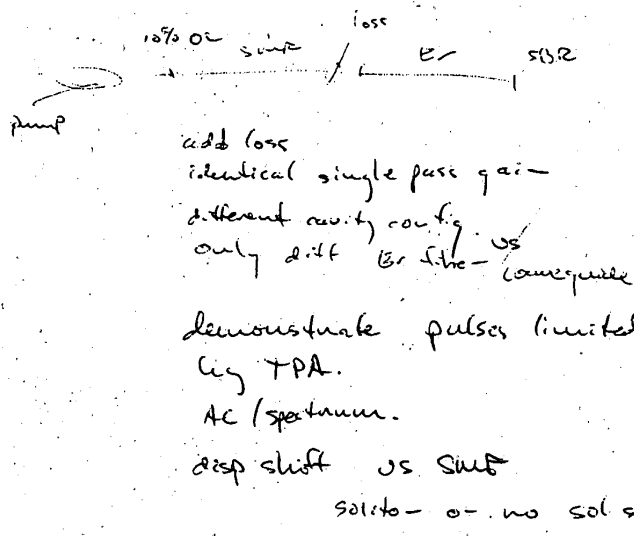 10% OC
smf
loss
Er
SBR
pump
add loss
identical single pass gain
different cavity config.
only diff Er fibre vs
waveguide
demonstrate pulses limited
by TPA.
AC / spectrum.
disp shift vs SMF
soliton or no sol s